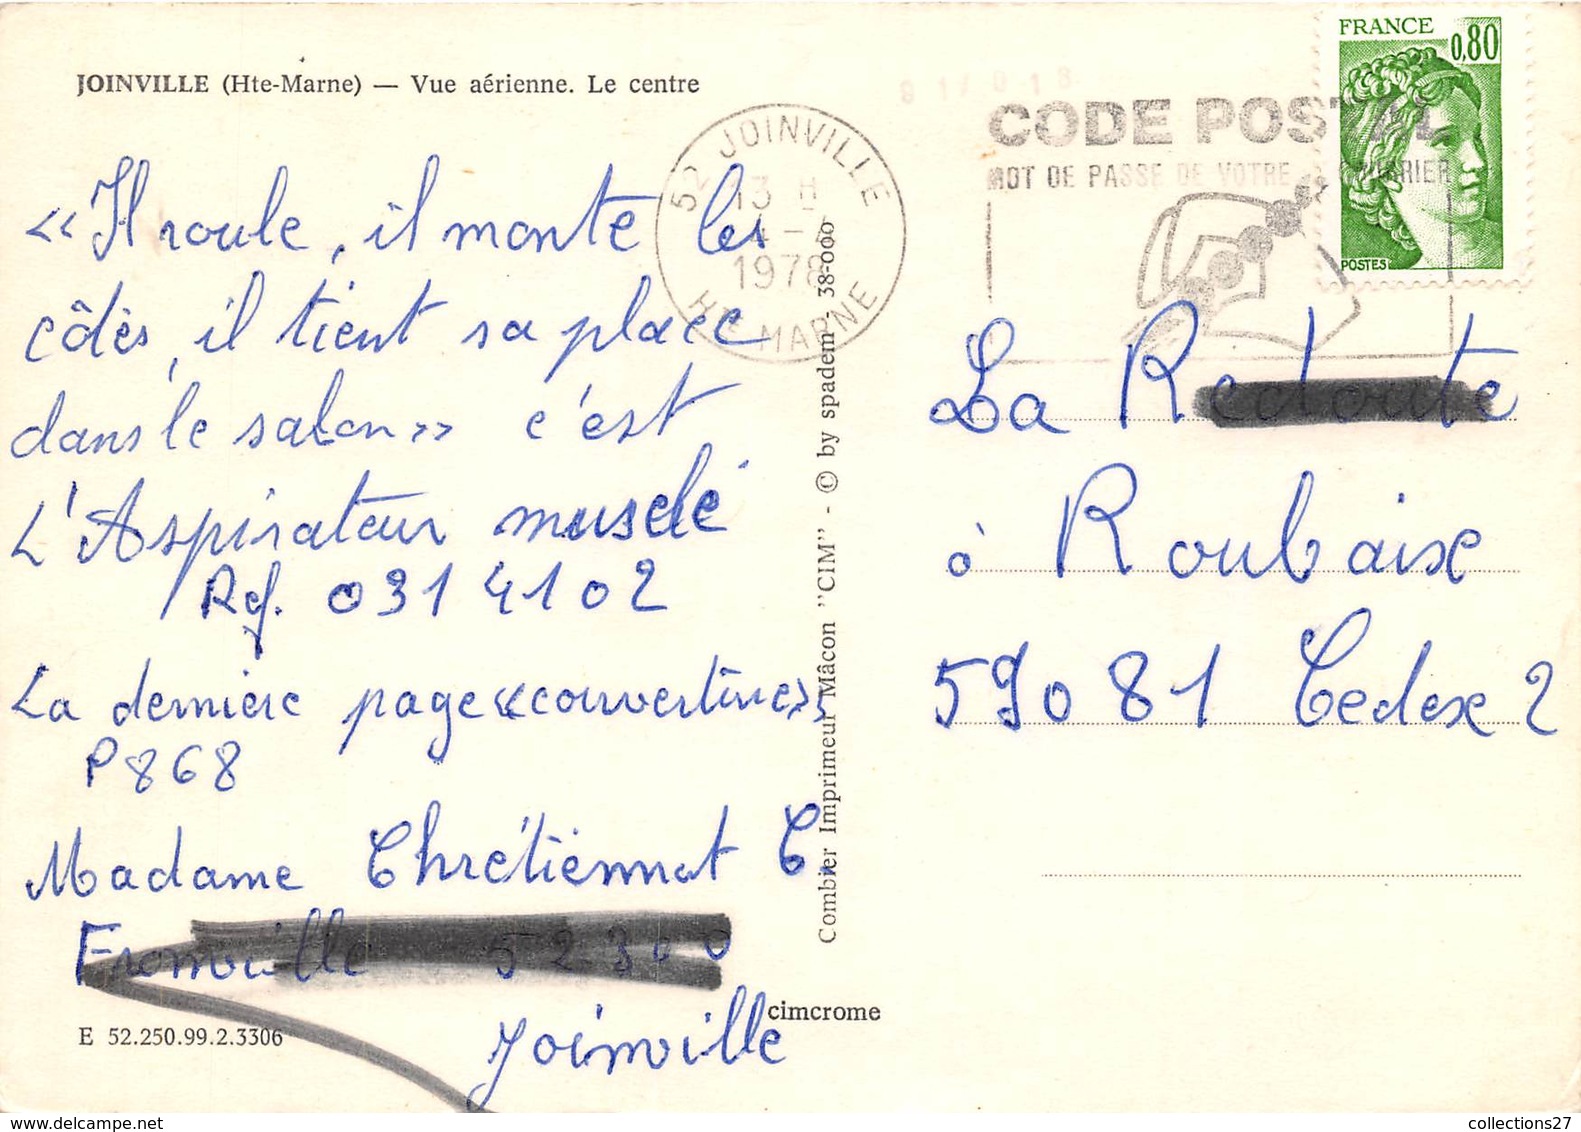 JOINVILLE (Hte-Marne) — Vue aérienne. Le centre
« Il roule, il monte les
côtés, il tient sa place
dans le salon » c'est
L'Aspirateur musclé
Ref. 031 4102
La dernière page « couverture »
P 868
Madame Chrétiennot C.
Fronville 52300
Joinville
E 52.250.99.2.3306
cimcrome
Combier Imprimeur Mâcon "CIM" - © by spadem 38-000
52 JOINVILLE
13 H
1978
HTE MARNE
CODE POSTAL
MOT DE PASSE DE VOTRE COURRIER
FRANCE
0,80
POSTES
La Redoute
à Roubaix
59081 Cedex 2
collections27